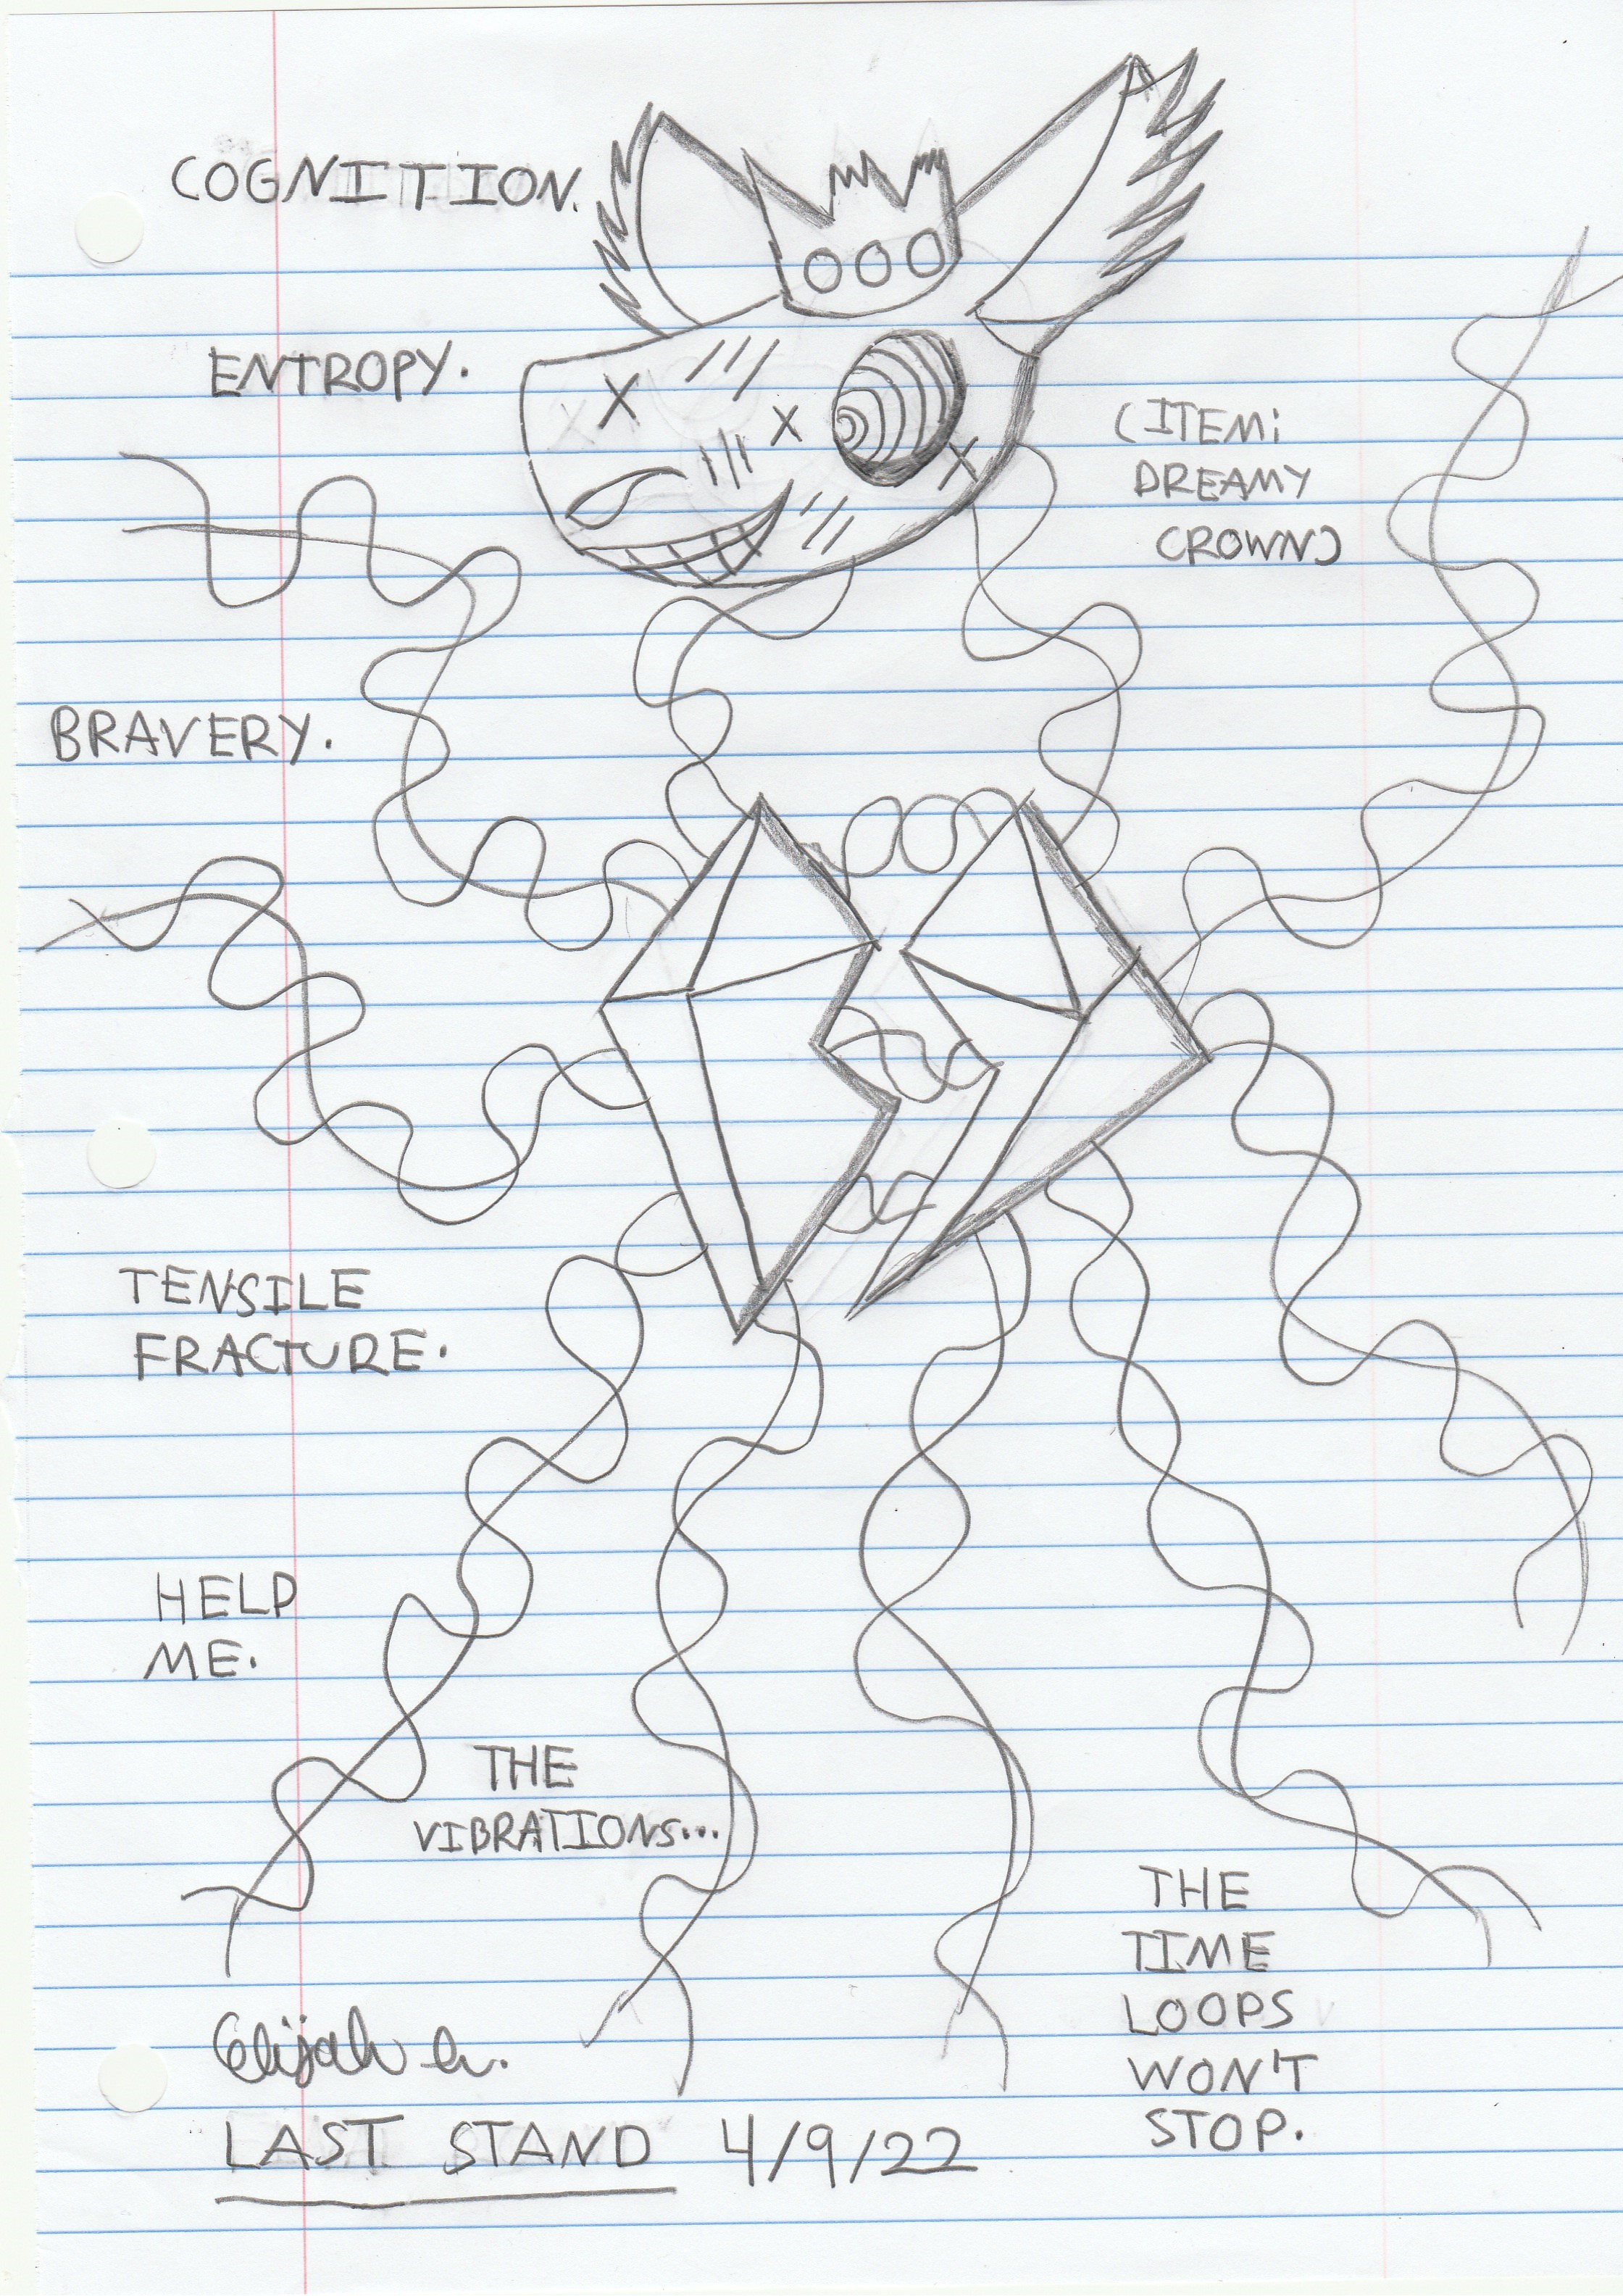 COGNITION.
ENTROPY.
(ITEM:
DREAMY
CROWN)
BRAVERY.
TENSILE
FRACTURE.
HELP
ME.
THE
VIBRATIONS...
THE
TIME
LOOPS
WON'T
STOP.
Elijah
LAST STAND 4/9/22